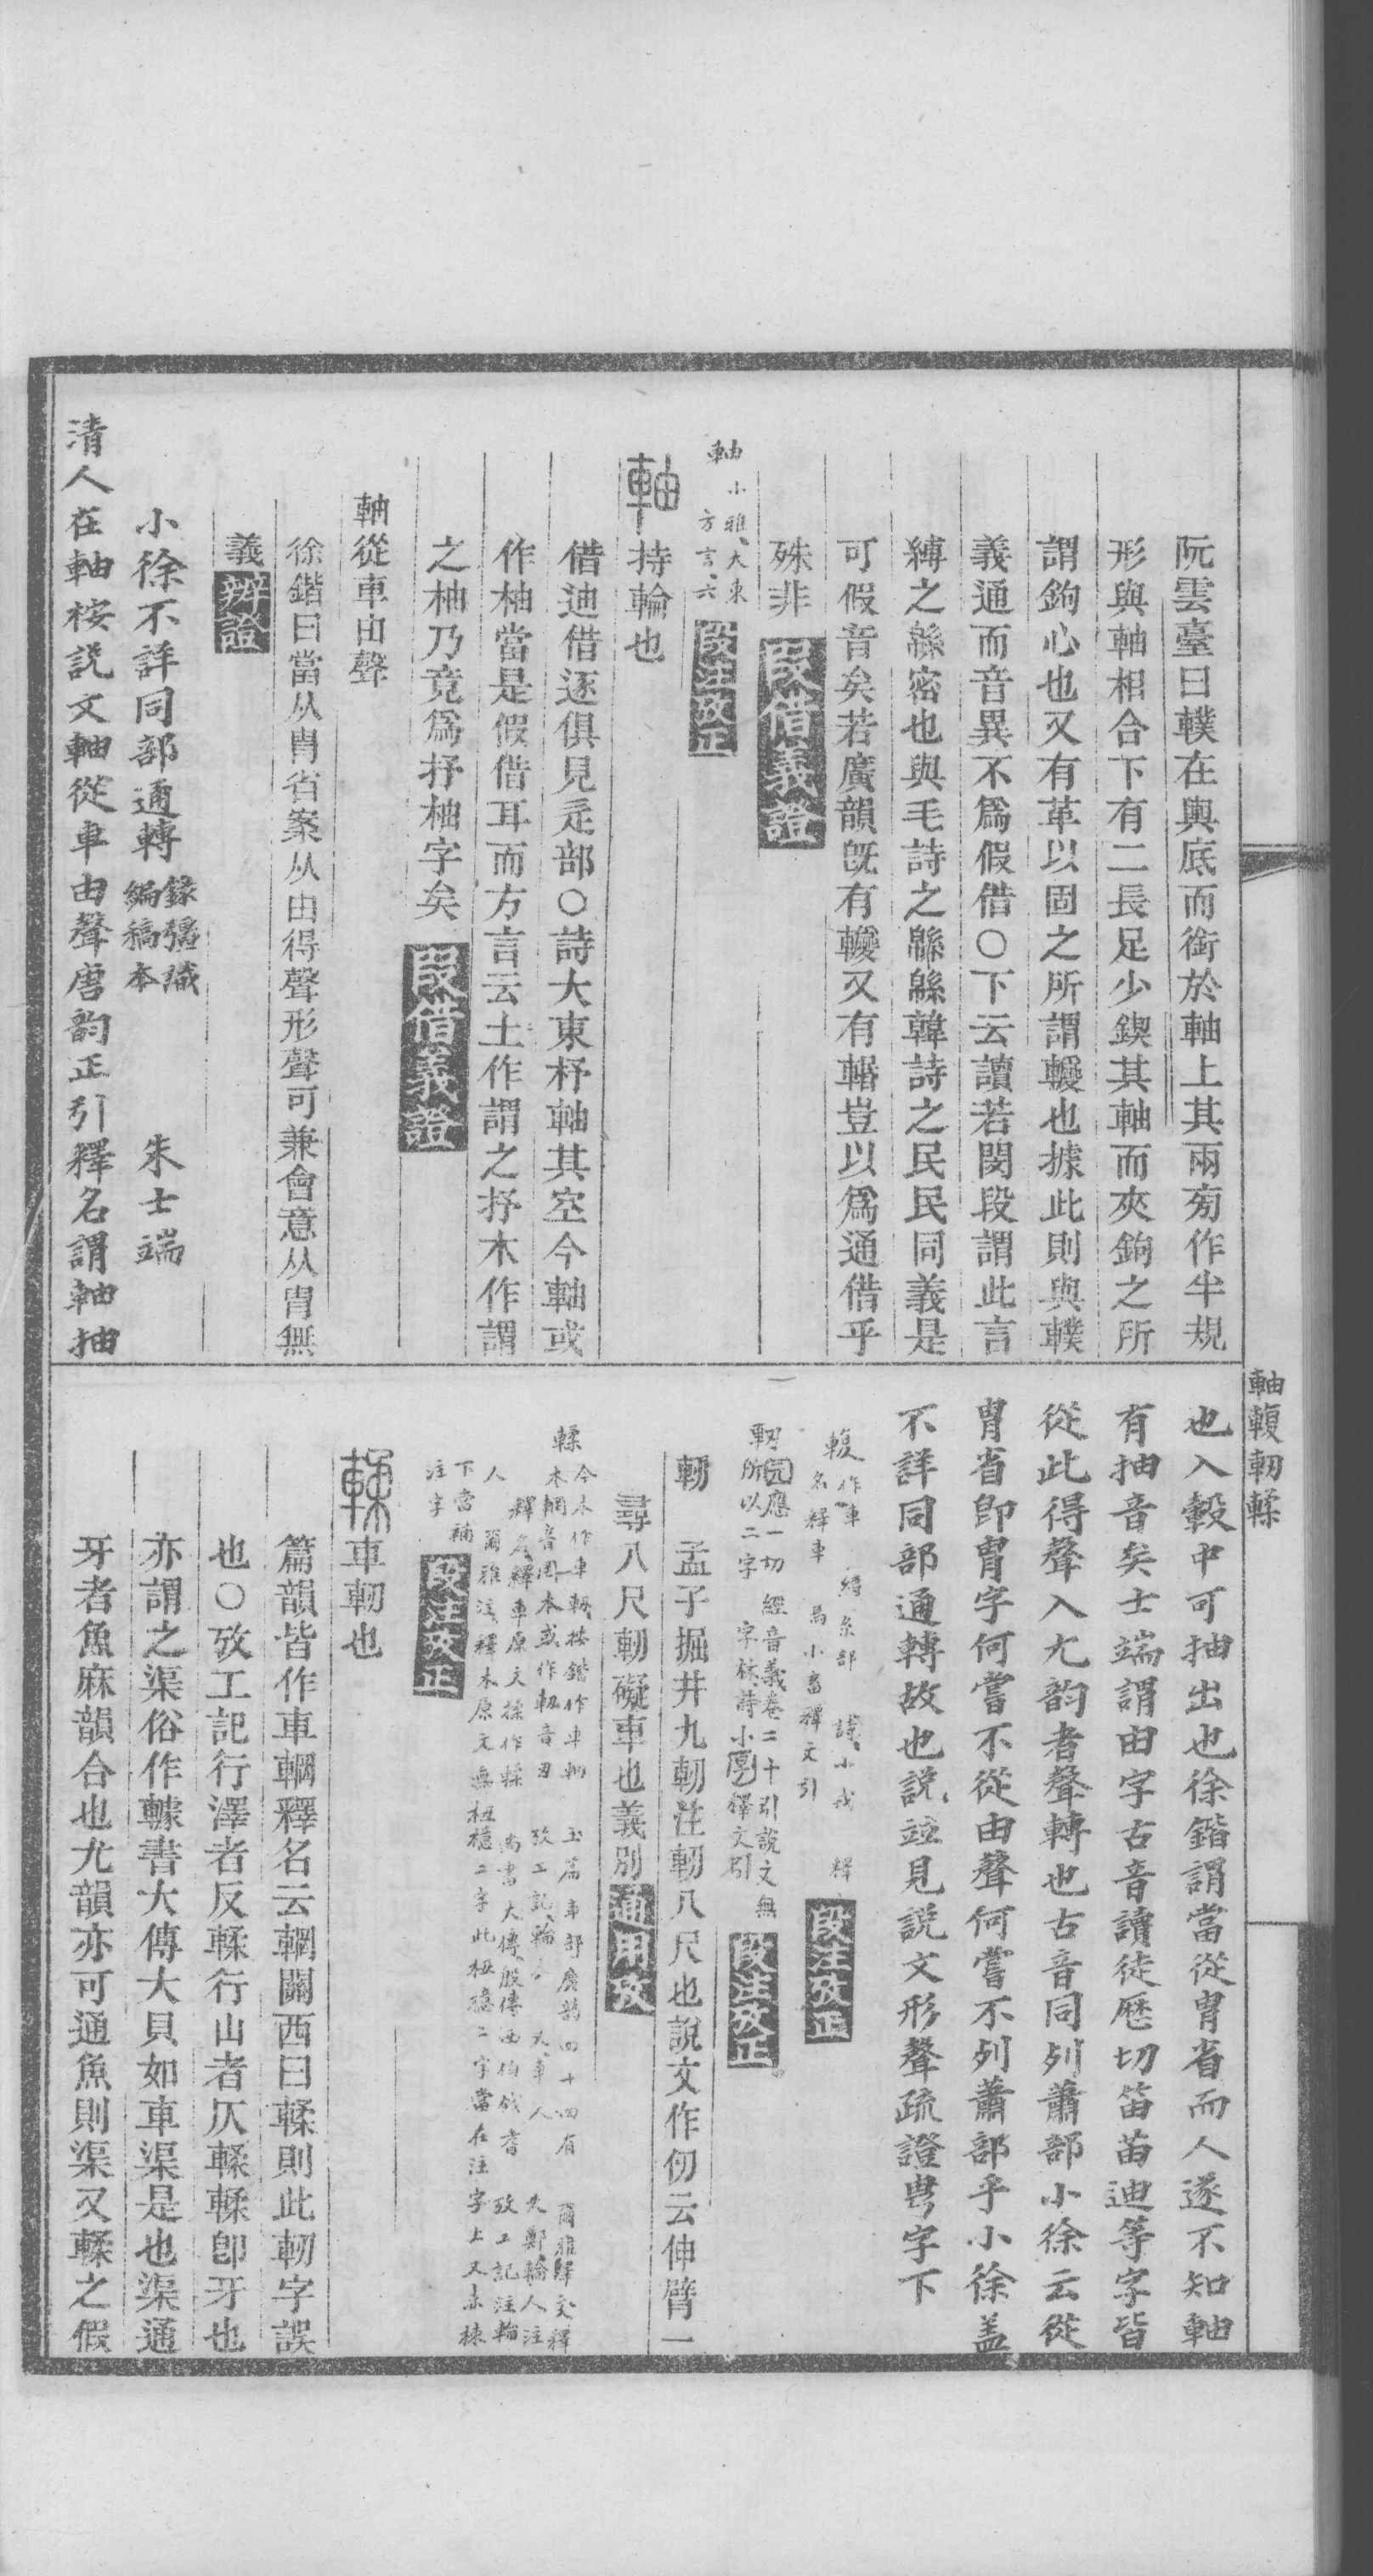 阮雲臺曰轐在輿底而銜於軸上其兩旁作半規
形與軸相合下有二長足少鍥其軸而夾鉤之所
謂鉤心也又有革以固之所謂䡩也據此則與轐
義通而音異不爲假借○下云讀若閔段謂此言
縛之緜密也與毛詩之緜緜韓詩之民民同義是
可假音矣若廣韻旣有䡩又有輴豈以爲通借乎
殊非 段借義證
軸 小雅、大東 方言、六 段注攷正
軸持輪也
借迪借逐俱見辵部○詩大東杼軸其空今軸或
作柚當是假借耳而方言云土作謂之杼木作謂
之柚乃竟爲抒柚字矣 段借義證
軸從車由聲
徐鍇曰當从胄省案从由得聲形聲可兼會意从胄無
義 辨證
小徐不詳同部通轉 彊識編稿本錄 朱士端
清人在軸桉説文軸從車由聲唐韵正引釋名謂軸抽
軸輹軔輮
也入轂中可抽出也徐鍇謂當從胄省而人遂不知軸
有抽音矣士端謂由字古音讀徒歷切笛苖迪等字皆
從此得聲入尢韵者聲轉也古音同列蕭部小徐云從
胄省卽胄字何嘗不從由聲何嘗不列蕭部乎小徐盖
不詳同部通轉故也説竝見説文形聲疏證甹字下
輹 作車 名釋車 糸部 易小畜釋文引 小戎 釋 段注攷正
軔 所以二字 應一切經音義卷二十引説文無 字林詩小 釋文引 段注攷正
軔 孟子掘井九軔注軔八尺也說文作仞云伸臂一
尋八尺軔礙車也義別 通用攷
輮 今木作車軔桉鍇作車輞 玉篇車部廣韵四十四有 爾雅釋文釋
木輞音罔本或作軔音刃 攷工記、輪人 大車人 大鄭輪人注
釋名釋車原文徐作輮 尚書大傳殷傳西伯戡耆 攷工記注輪
人 爾雅注釋木原文無杻檍二字此杻檍二字當在注字上又赤棟
下當補
注字 段注攷正
輮車軔也
篇韻皆作車輞釋名云輞關西曰輮則此軔字誤
也○攷工記行澤者反輮行山者仄輮輮卽牙也
亦謂之渠俗作轈書大傳大貝如車渠是也渠通
牙者魚麻韻合也尤韻亦可通魚則渠又輮之假